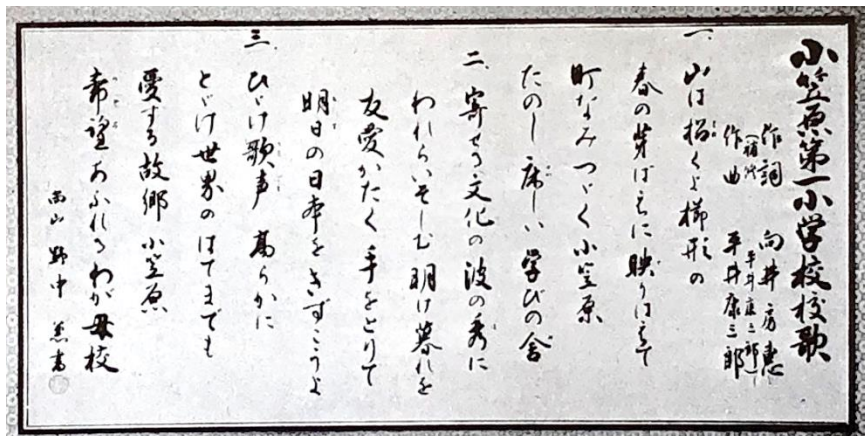 小笠原第一小学校校歌
作詞 向井房恵
(補作 平井康三郎)
作曲 平井康三郎
一、山は招くよ櫛形の
春の芽はえに映りはえて
町なみつづく小笠原
たのし床しい学びの舍
二、寄せる文化の波の秀に
われらいそしむ明け暮れを
友愛かたく手をとりて
明日の日本をきずこうよ
三、ひびけ歌声高らかに
とどけ世界のはてまでも
愛する故郷小笠原
希望あふれるわが母校
南山 野中 書